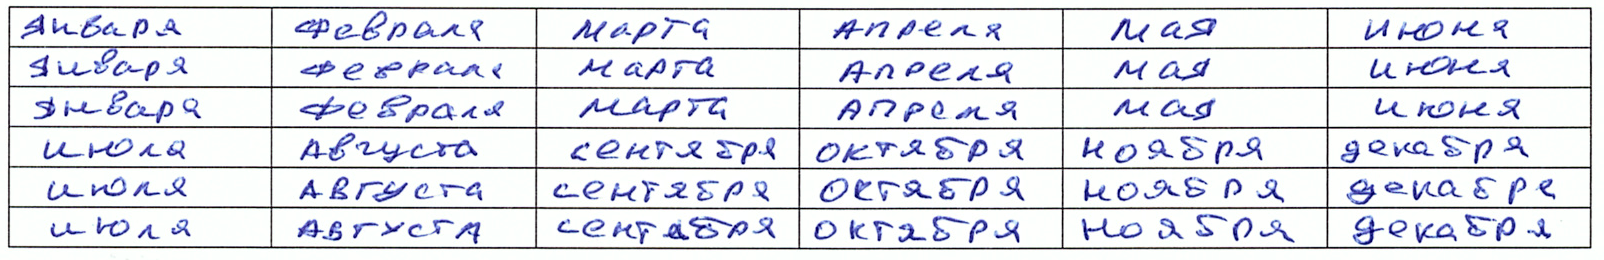 января февраля марта апреля мая июня
января февраля марта апреля мая июня
января февраля марта апреля мая июня
июля августа сентября октября ноября декабря
июля августа сентября октября ноября декабря
июля августа сентября октября ноября декабря